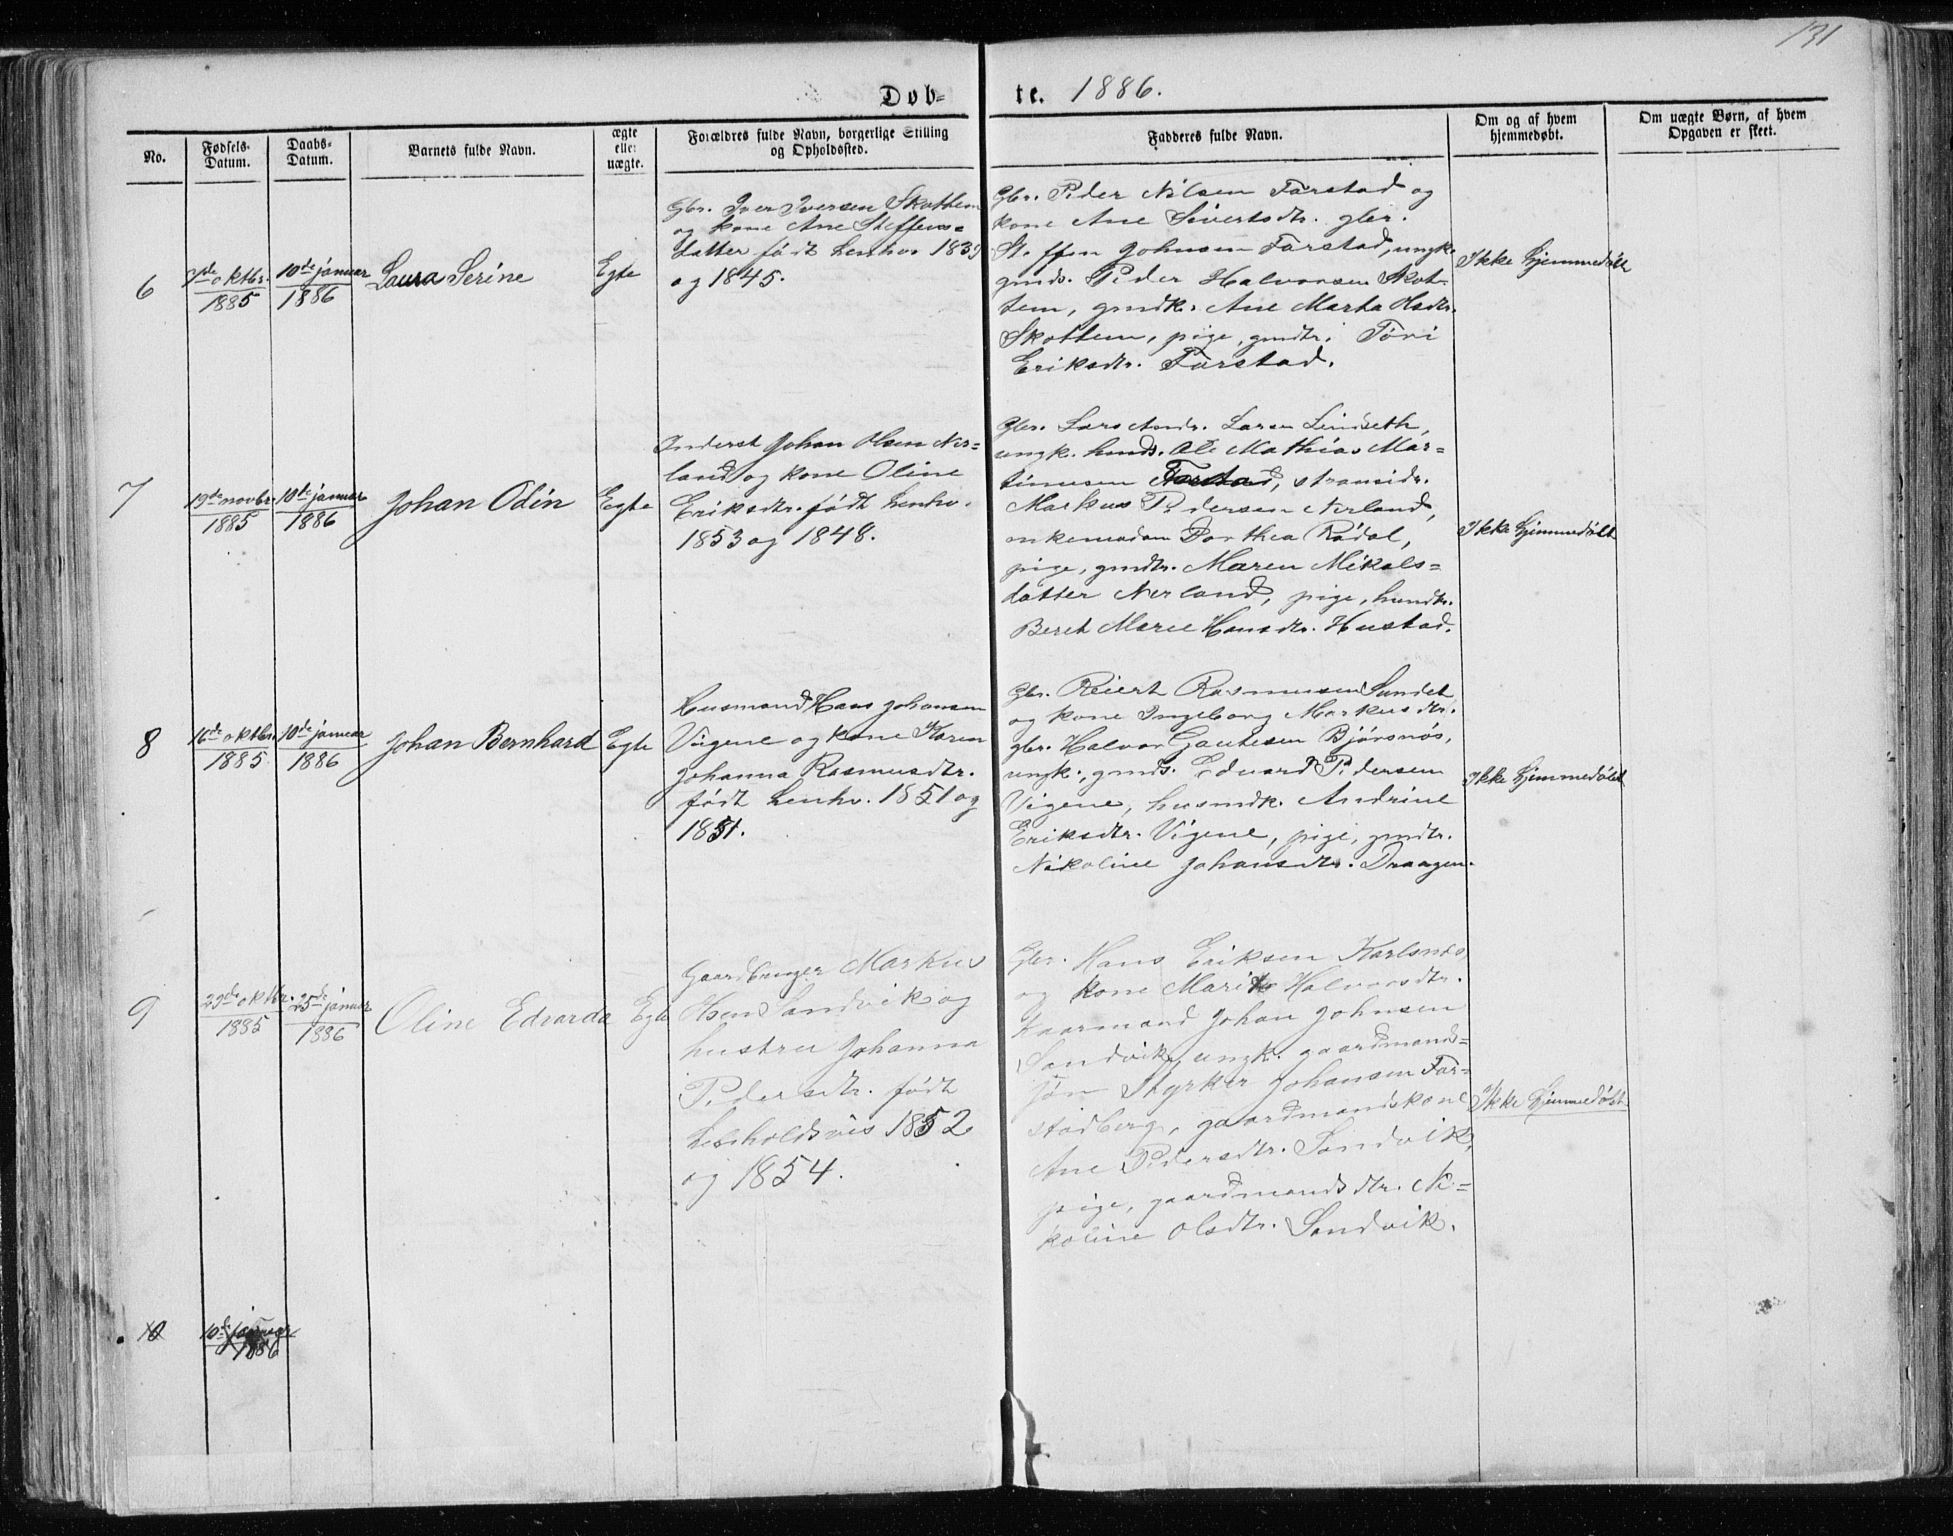 131
Døb-
te. 1886.
No.
Fødsels-
Datum.
Daabs-
Datum.
Barnets fulde Navn.
ægte
eller
uægte.
Forældres fulde Navn, borgerlige Stilling
og Opholdssted.
Fadderes fulde Navn.
Om og af hvem
hjemmedøbt.
Om uægte Børn, af hvem
Opgaven er skeet.
6
7de oktbr.
1885
10de januar
1886
Laura Serine
Egte
Gbr. Iver Iversen Skottem
og kone Ane Steffens-
datter født henhv. 1839
og 1845.
Gbr. Peder Nilsen Farstad og
kone Ane Sivertsdtr. gbr.
Steffen Johnsen Farstad, ungk.
gmds. Peder Halvorsen Skot-
tem, gmdk. Ane Marta Hsdtr.
Skottem, pige, gmdtr.
Eriksdtr. Farstad.
Ikke hjemmedøbt
7
19de novbr.
1885
10de januar
1886
Johan Odin
Egte
Inderst Johan Olsen Ner-
land og kone Oline
Eriksdtr. født henhv.
1853 og 1848.
Gbr. Lars Andr. Larsen Lindseth,
ungk. hmds. Ole Mathias Mar-
tinusen Farstad, strandsidr.
Markus Pedersen Nerland,
enkemadam Dorthea Rødal,
pige, gmdtr. Maren Mikals-
datter Nerland, pige, hmdtr.
Beret Marie Hansdtr. Hustad.
Ikke hjemmedøbt
8
16de oktbr.
1885
10de januar
1886
Johan Bernhard
Egte
Husmand Hans Johansen
Vigene og kone Karen
Johanna Rasmusdtr.
født henhv. 1851 og
1851.
Gbr. Reiert Rasmusen Sundet
og kone Ingeborg Markusdtr.
gbr. Halvor Gautesen Bjørsnøs,
ungk., gmds. Edvard Pedersen
Vigene, husmdk. Andrine
Eriksdtr. Vigene, pige, gmdtr.
Nikoline Johansdtr. Draagen.
Ikke hjemmedøbt
9
23de oktbr.
1885
25de januar
1886
Oline Edvarda
Egte
Gaardbruger Markus
Hsen Sandvik og
hustru Johanna
Pedersdtr. født
henholdsvis 1852
og 1854.
Gbr. Hans Eriksen Karlsnæs
og kone Marit Halvorsdtr.
kaarmand Johan Johnsen
Sandvik, ungk. gaardmands-
søn Styrker Johansen Far-
stadberg, gaardmandskone
Ane Pedersdtr. Sandvik,
pige, gaardmandsdtr. Ni-
koline Olsdtr. Sandvik.
Ikke hjemmedøbt
10
10de januar
1886